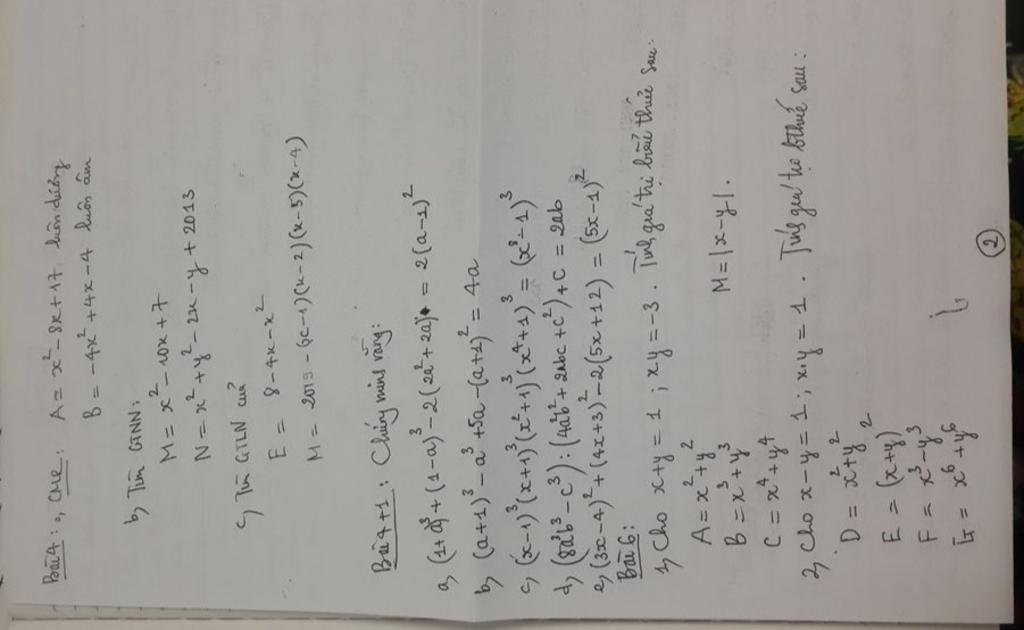 Bài 4: a, CMR: A = x² - 8x + 17 luôn dương
B = -4x² + 4x - 4 luôn âm
b, Tìm GTNN:
M = x² - 10x + 7
N = x² + y² - 2x - y + 2013
c, Tìm GTLN của
E = 8 - 4x - x²
M = 2019 - (x-1)(x-2)(x-5)(x-4)
Bài 4+1: Chứng minh rằng:
a, (1+a)³ + (1-a)³ - 2(2a² + 2a) = 2(a-1)²
b, (a+1)³ - a³ + 5a - (a+1)² = 4a
c, (x-1)³(x+1)³(x²+1)³(x⁴+1)³ = (x⁸-1)³
d, (8a³b³ - c³) : (4a²b² + 2abc + c²) + c = 2ab
e, (3x-4)² + (4x+3)² - 2(5x+12) = (5x-1)²
Bài 6:
1, Cho x+y = 1 ; xy = -3. Tính giá trị biểu thức sau:
A = x² + y²
B = x³ + y³ M = |x-y|.
C = x⁴ + y⁴
2, Cho x-y = 1 ; x,y = 1. Tính giá trị bthức sau:
D = x² + y²
E = (x+y)²
F = x³ - y³
G = x⁶ + y⁶
2